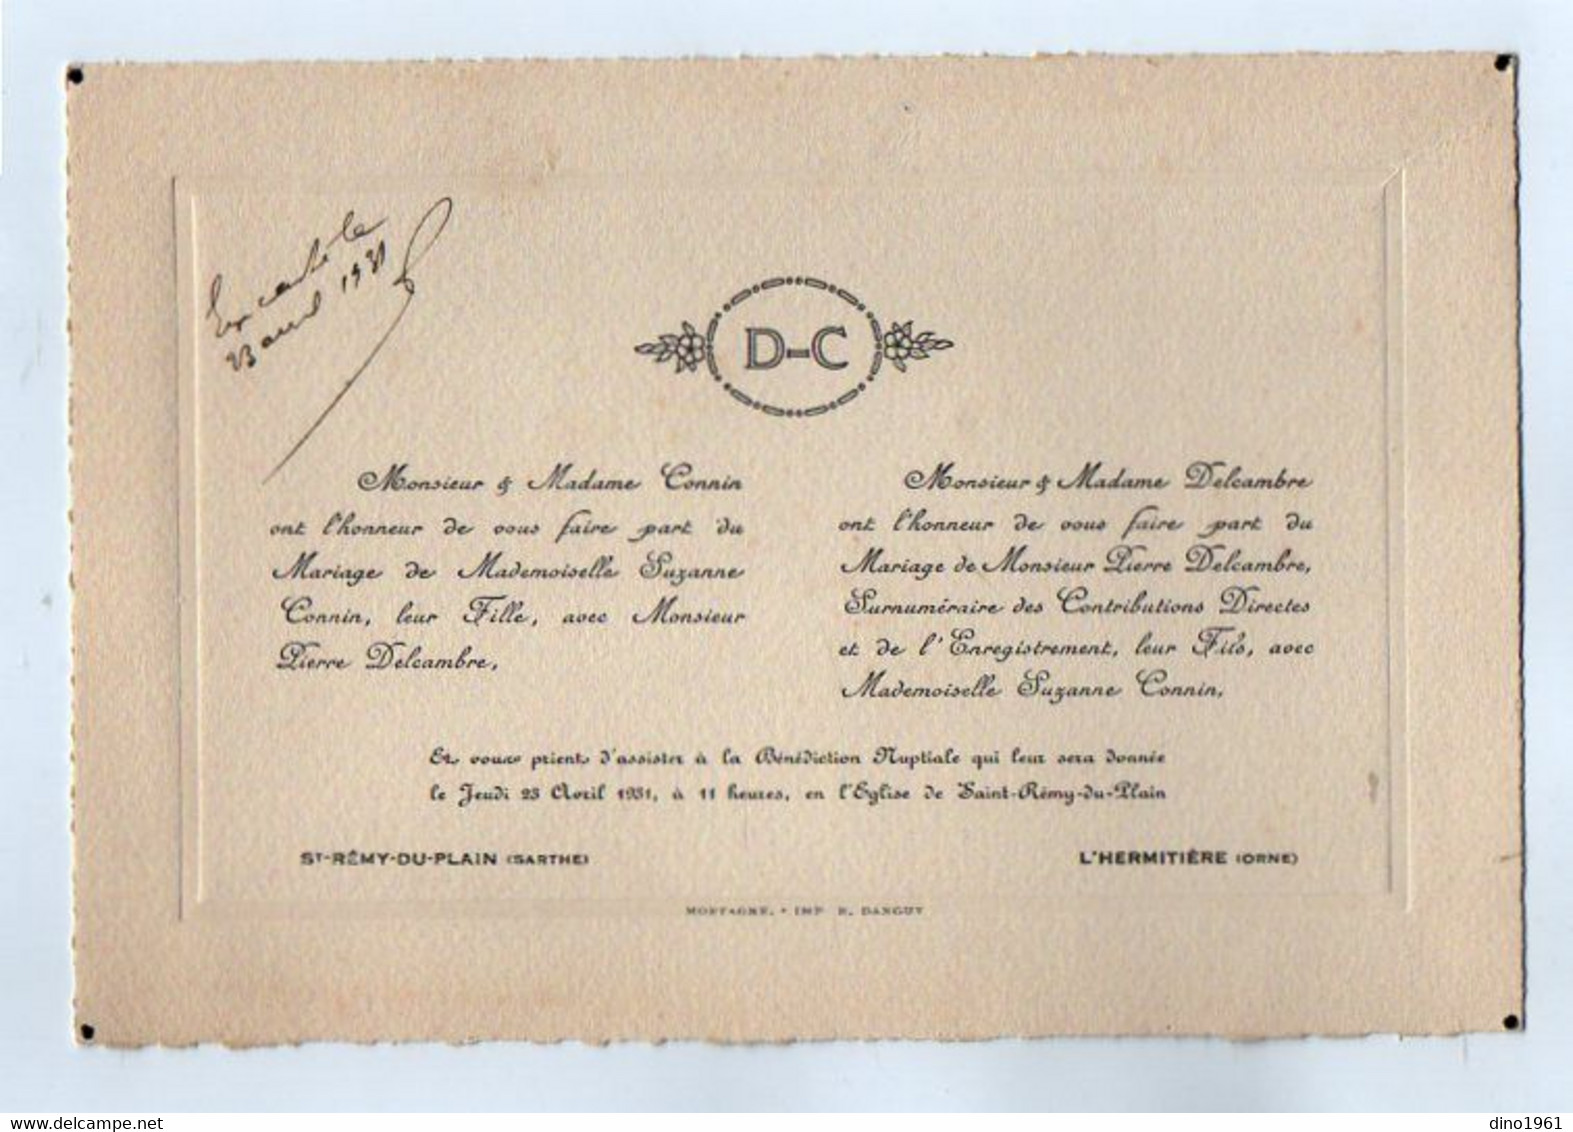 le
23 avril 1931
D-C
Monsieur & Madame Connin
ont l'honneur de vous faire part du
Mariage de Mademoiselle Suzanne
Connin, leur Fille, avec Monsieur
Pierre Delcambre,
Monsieur & Madame Delcambre
ont l'honneur de vous faire part du
Mariage de Monsieur Pierre Delcambre,
Surnuméraire des Contributions Directes
et de l'Enregistrement, leur Fils, avec
Mademoiselle Suzanne Connin,
Et vous prient d'assister à la Bénédiction Nuptiale qui leur sera donnée
le Jeudi 23 Avril 1931, à 11 heures, en l'Eglise de Saint-Rémy-du-Plain
ST-RÉMY-DU-PLAIN (SARTHE)
L'HERMITIÈRE (ORNE)
MORTAGNE. • IMP R. DANGUY
delcampe.net
dino1961